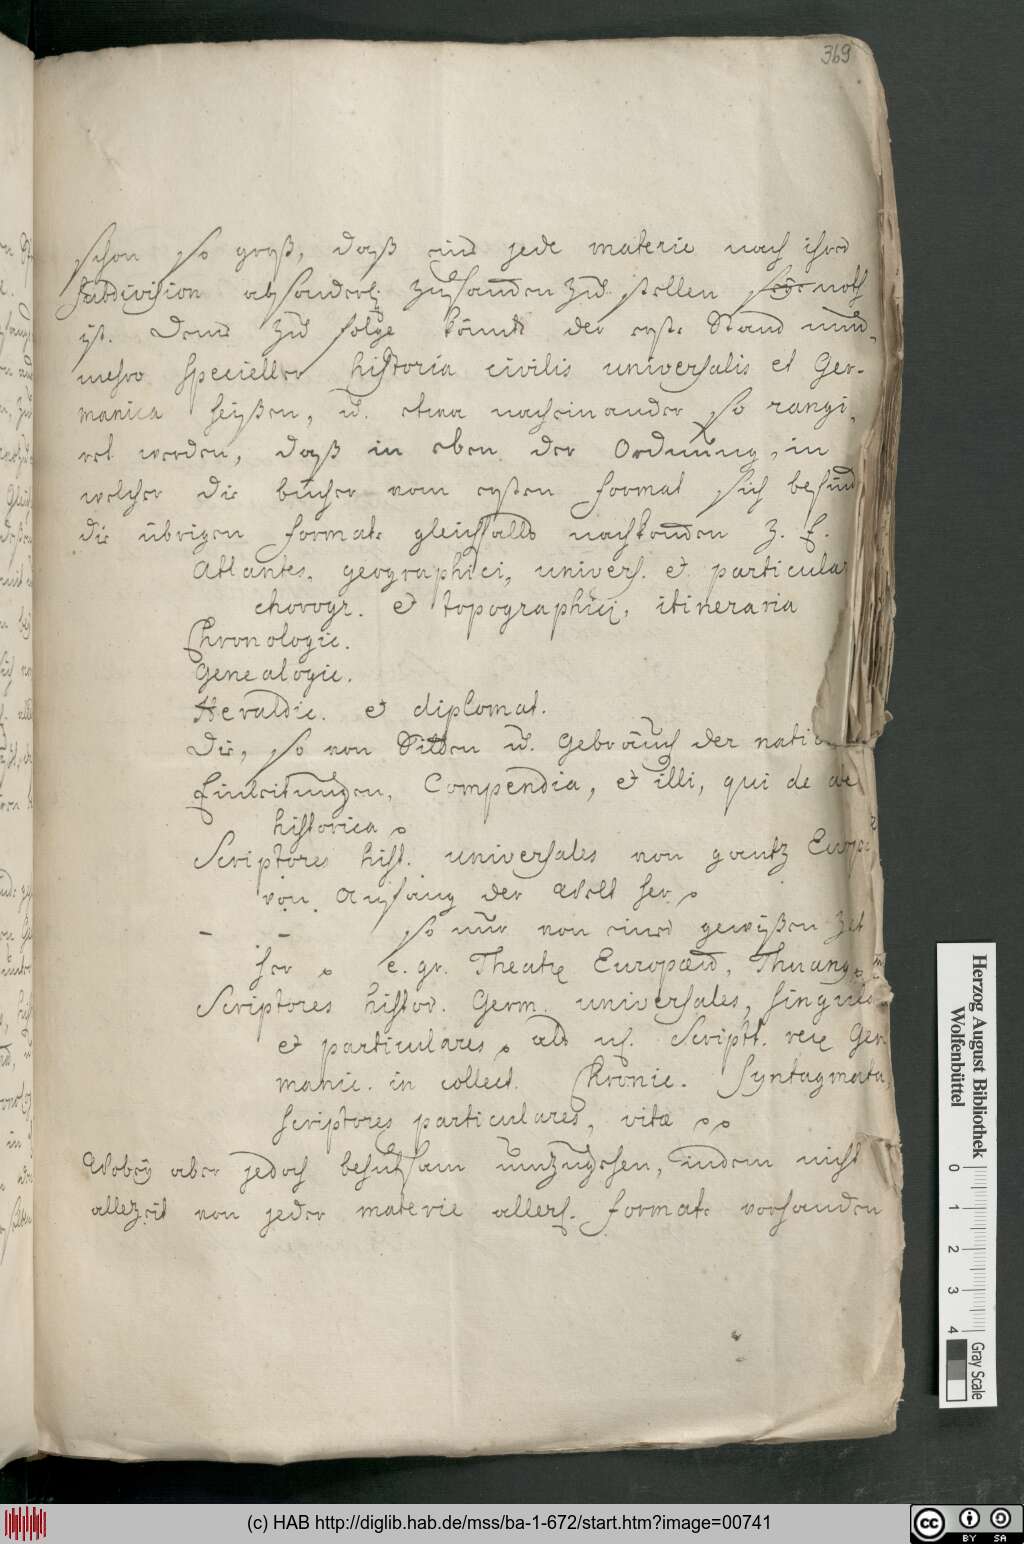 369
schon so groß, daß eine jede materie nach ihrer
Subdivision absonderl. zusanden zu stellen noth
ist. Dem zu folge könnte der erste Stand nun-
mehro specieller historia civilis universalis et Ger-
manica heißen, u. etwa nacheinander so rangi-
ret werden, daß in eben der Ordnung, in
welcher die bücher vom ersten format sich befind
die übrigen formate gleichfalls nachkomen z. E.
Atlantes, geographici, univers. et particula
chorogr. et topographici, itineraria
Chronologic.
Genealogic.
Heraldic. et diplomat.
Die, so von Sitten u. Gebräuch der natio
Einleitungen, Compendia, et illi, qui de
historica
Scriptores hist. universales von gantz Europ
von Anfang der Welt her
- - so nur von einer gewißen Zeit
her e. gr. Theatr. Europaeum, Thuang
Scriptores histor. Germ. universales, singula
et particulares als Scriptt. rer. Ger
manic. in collect. Chronic. Syntagmata
scriptores particulares, vitae
Wobey aber jedoch behutsam umzugehen, indem nicht
allezeit von jeder materie allerh. formate vorhanden
Herzog August Bibliothek
Wolfenbüttel
0 1 2 3 4
Gray Scale
(c) HAB http://diglib.hab.de/mss/ba-1-672/start.htm?image=00741
cc BY SA